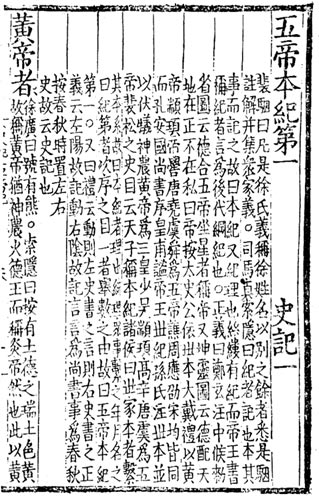 五帝本紀第一　史記一
裴駰曰凡是徐氏義稱徐姓名以別之餘者悉是駰
註解并集衆家義。司馬貞索隱曰紀者記也本其
事而記之故曰本紀又紀理也絲縷有紀而帝王書
稱紀者言為後代綱紀也。正義曰鄭玄注中候勑
省圖云德合五帝坐星者稱帝又坤靈圖云德配天
地在正不在私曰帝按太史公依世本大戴禮以黃
帝顓頊帝嚳唐堯虞舜為五帝譙周應劭宋均皆同
而孔安國尚書序皇甫謐帝王世紀孫氏注世本並
以伏犧神農黃帝為三皇少昊顓頊高辛唐虞為五
帝裴松之史目云天子稱本紀諸侯曰世家本者繫
其本系故曰本紀者理也統理衆事繫之年月名之
曰紀第者次序之目一者舉數之由故曰五帝本紀
第一。又曰禮云動則左史書之言則右史書之正
義云左陽故記動右陰故記言言為尚書事為春秋
按春秋時置左右
史故云史記也
黃帝者
徐廣曰號有熊。索隱曰按有土德之瑞土色黃
故稱黃帝猶神農火德王而稱炎帝然也此以黃